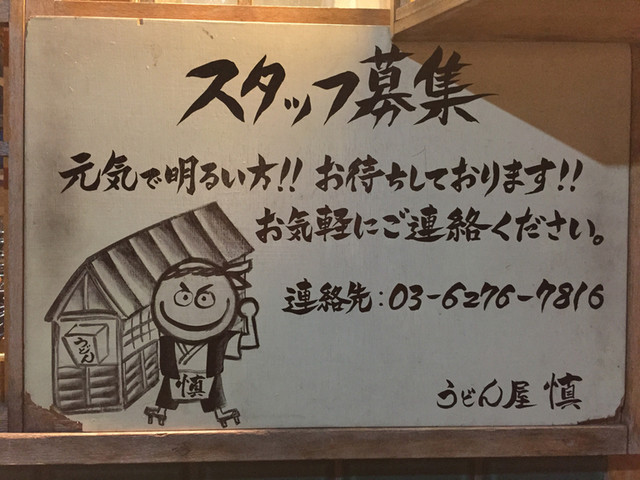 スタッフ募集
元気で明るい方!! お待ちしております!!
お気軽にご連絡ください。
連絡先:03-6276-7816
うどん
慎
うどん屋 慎